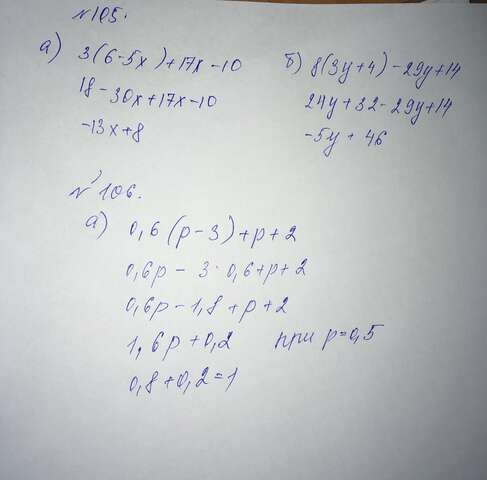 №105.
а) 3(6-5x)+17x-10
18-30x+17x-10
-13x+8
б) 8(3y+4)-29y+14
24y+32-29y+14
-5y+46
№106.
а) 0,6(p-3)+p+2
0,6p-3·0,6+p+2
0,6p-1,8+p+2
1,6p+0,2 при p=0,5
0,8+0,2=1